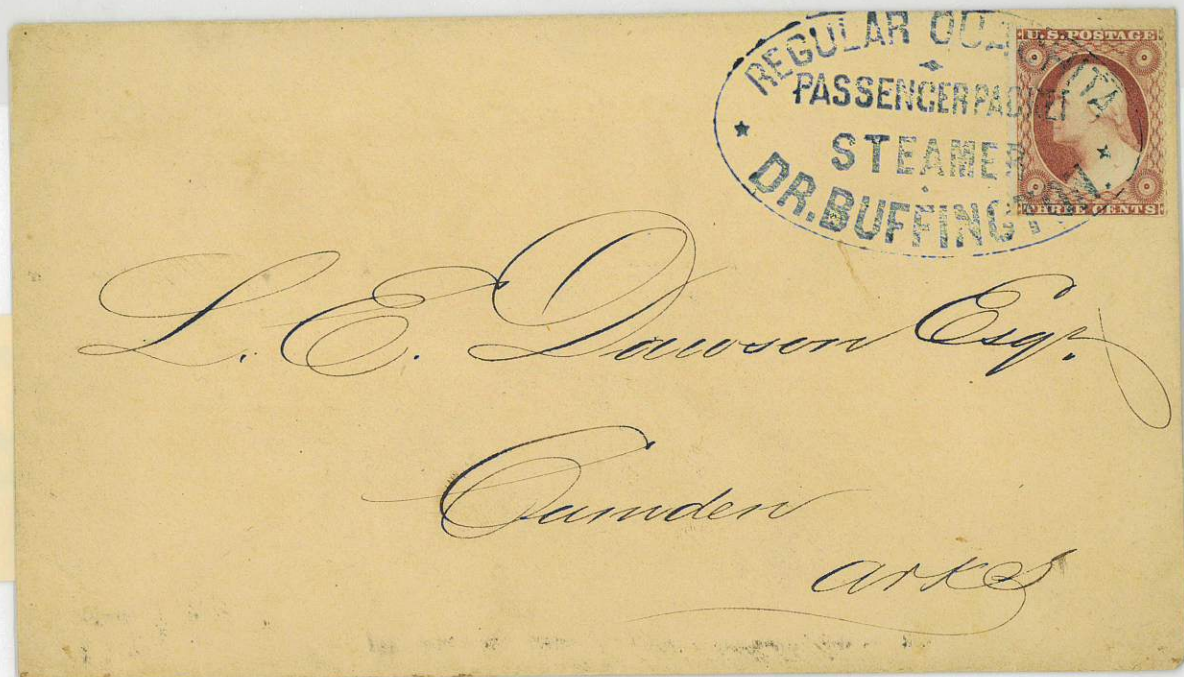 REGULAR OUACHITA
PASSENGER PACKET
STEAMER
DR. BUFFINGTON.
U.S. POSTAGE
THREE CENTS
L. E. Dawson Esqr.
Camden
Arks